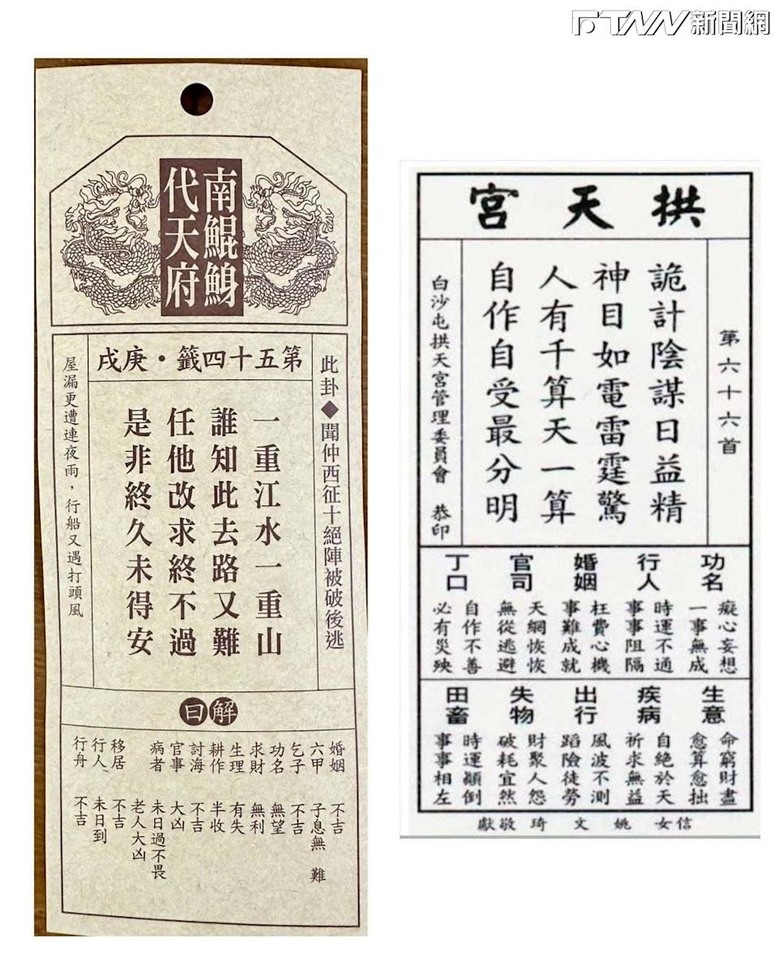 FTNN新聞網
南鯤鯓
代天府
第五十四籤・庚戌
此卦◆聞仲西征十絕陣被破後逃
一重江水一重山
誰知此去路又難
任他改求終不過
是非終久未得安
屋漏更遭連夜雨,行船又遇打頭風
解曰
婚姻 不吉
六甲 子息無 難
乞子 不吉
功名 無望
求財 無利
生理 有失
耕作 半收
討海 不吉
官事 大凶
病者 未日過不畏
老人大凶
移居 不吉
行人 未日到
行舟 不吉
拱天宮
第六十六首
詭計陰謀日益精
神目如電雷霆驚
人有千算天一算
自作自受最分明
白沙屯拱天宮管理委員會 恭印
功名
癡心妄想
一事無成
行人
時運不通
事事阻隔
婚姻
枉費心機
事難成就
官司
天網恢恢
無從逃避
丁口
自作不善
必有災殃
生意
命窮財盡
愈算愈拙
疾病
自絕於天
祈求無益
出行
風波不測
蹈險徒勞
失物
財聚人怨
破耗宜然
田畜
時運顛倒
事事相左
信女 姚文琦 敬獻